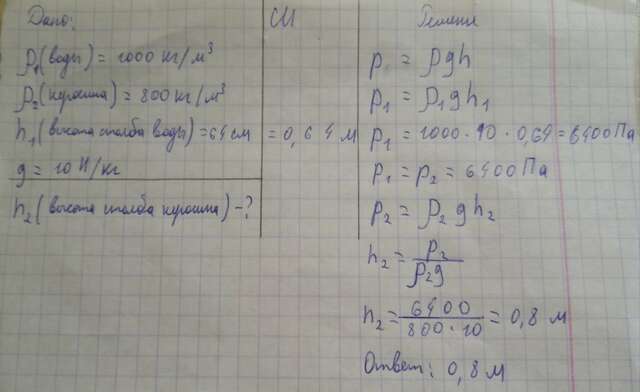 Дано:
ρ₁(воды) = 1000 кг/м³
ρ₂(керосина) = 800 кг/м³
h₁(высота столба воды) = 64 см
g = 10 Н/кг
h₂(высота столба керосина) - ?
СИ
= 0,64 м
Решение
p₁ = ρgh
p₁ = ρ₁gh₁
p₁ = 1000 · 10 · 0,64 = 6400 Па
p₁ = p₂ = 6400 Па
p₂ = ρ₂gh₂
h₂ = p₂/ρ₂g
h₂ = 6400/800·10 = 0,8 м
Ответ: 0,8 м